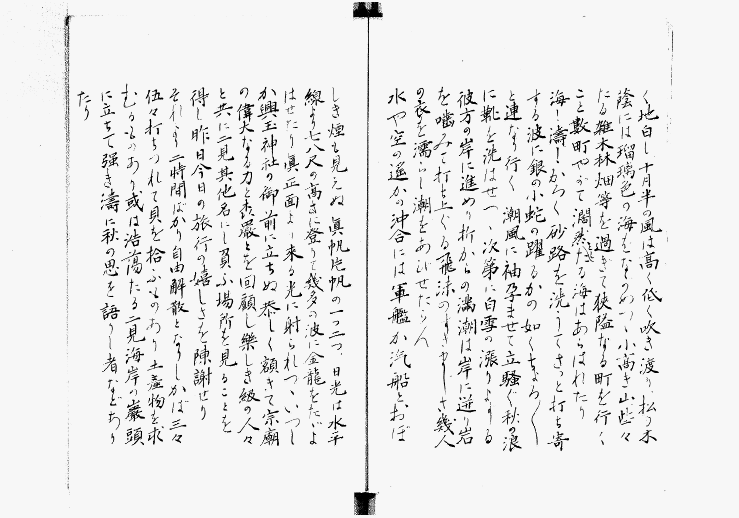 く地白し十月半の風は高く低く吹き渡り松の木
陰には瑠璃色の海をながめつゝ小高き山些々
たる雑木林畑等を過ぎて狭隘なる町を行く
こと数町やがて濶然たる海はあらはれたり
海し濤しかろく砂路を洗うてさっと打ち寄
する波に銀の小蛇の躍るかの如くもろ〳〵
と連なり行く潮風に袖孕ませて立騒ぐ秋の浪
に靴を洗はせつゝ次第に白雪の漲りよする
彼方の岸に進めり折からの満潮は岸に迸り岩
を噛みて打ち上ぐる飛沫の すさまじさ幾人
の衣を濡らし潮をあびせたらん
水や空の遥かの沖合には軍艦か汽船とおぼ
しき煙も見えぬ真帆片帆の一つ二つ、日光は水平
線より七八尺の高さに登りて幾多の波に金龍をたゞよ
はせたり真正面より来る光に射られつゝいつし
か興玉神社の御前に立ちぬ恭しく額きて宗廟
の偉大なる力と森厳とを回顧し楽しき級の人々
と共に二見其他名にし負ふ場所を見ることを
得し昨日今日の旅行の嬉しさを陳謝せり
それより二時間ばかり自由解散となりしかば三々
伍々打ちつれて貝を拾ふものあり土産物を求
むるものあり或は浩蕩たる二見海岸の巌頭
に立ちて強き濤に秋の思を語りし者などあり
たり